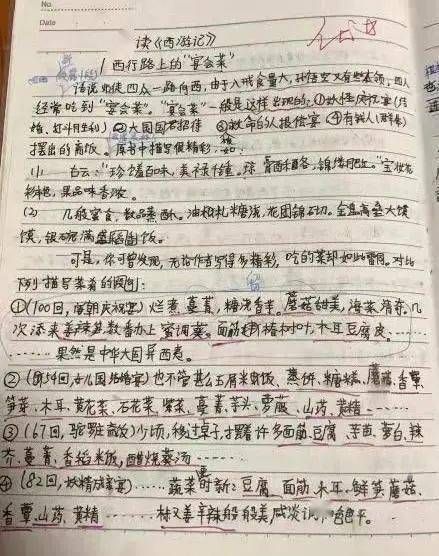 No.
Date
读《西游记》
1 西行路上的"宴会菜"
话说师徒四人一路向西,由于八戒食量大,孙悟空又有些本领,四人
经常吃到"宴会菜"。"宴会菜"一般是这样出现的:①妖怪庆宴(结
婚、 ) ②大国国君招待 ③救命的人报偿宴 ④有钱人(群众)
摆出的斋饭。原书中描写很精彩,
(1) 有云:"珍馐百味,美禄千钟。琼膏酥酪,锦缕肥红。"宝妆花
彩艳,果品味香浓。
(2) 几般蜜食,数品蒸酥。油札糖浇,花团锦砌。金盘高垒大馍
馍,银碗满盛稻饭。
可是,你可曾发现,无论作者写得多精彩,吃的菜却如此雷同。对比
下列描写菜肴的段词:
①(100回,唐朝庆祝宴)烂煮蔓菁,糖浇香芋。蘑菇甜美,海菜清奇。几
次添来姜辣笋,数番办上蜜调葵。面筋椿树叶,木耳豆腐皮。……
……果然是中华大国异西夷。
②(第54回,女儿国结婚宴)也不管甚么玉屑米饭、蒸饼、糖糕、蘑菇、香蕈、
笋芽、木耳、黄花菜、石花菜、紫菜、蔓菁、芋头、萝菔、山药、黄精……
③(67回,驼罗庄斋饭)少顷,移过桌子,摆着许多面筋、豆腐、芋苗、萝白、辣
芥、蔓菁、香稻米饭,醋烧葵汤……
④(82回,妖精成亲宴)……蔬菜更时新:豆腐、面筋、木耳、鲜笋、蘑菇、
香蕈、山药、黄精……椒姜辛辣般般美,咸淡调和色色平。